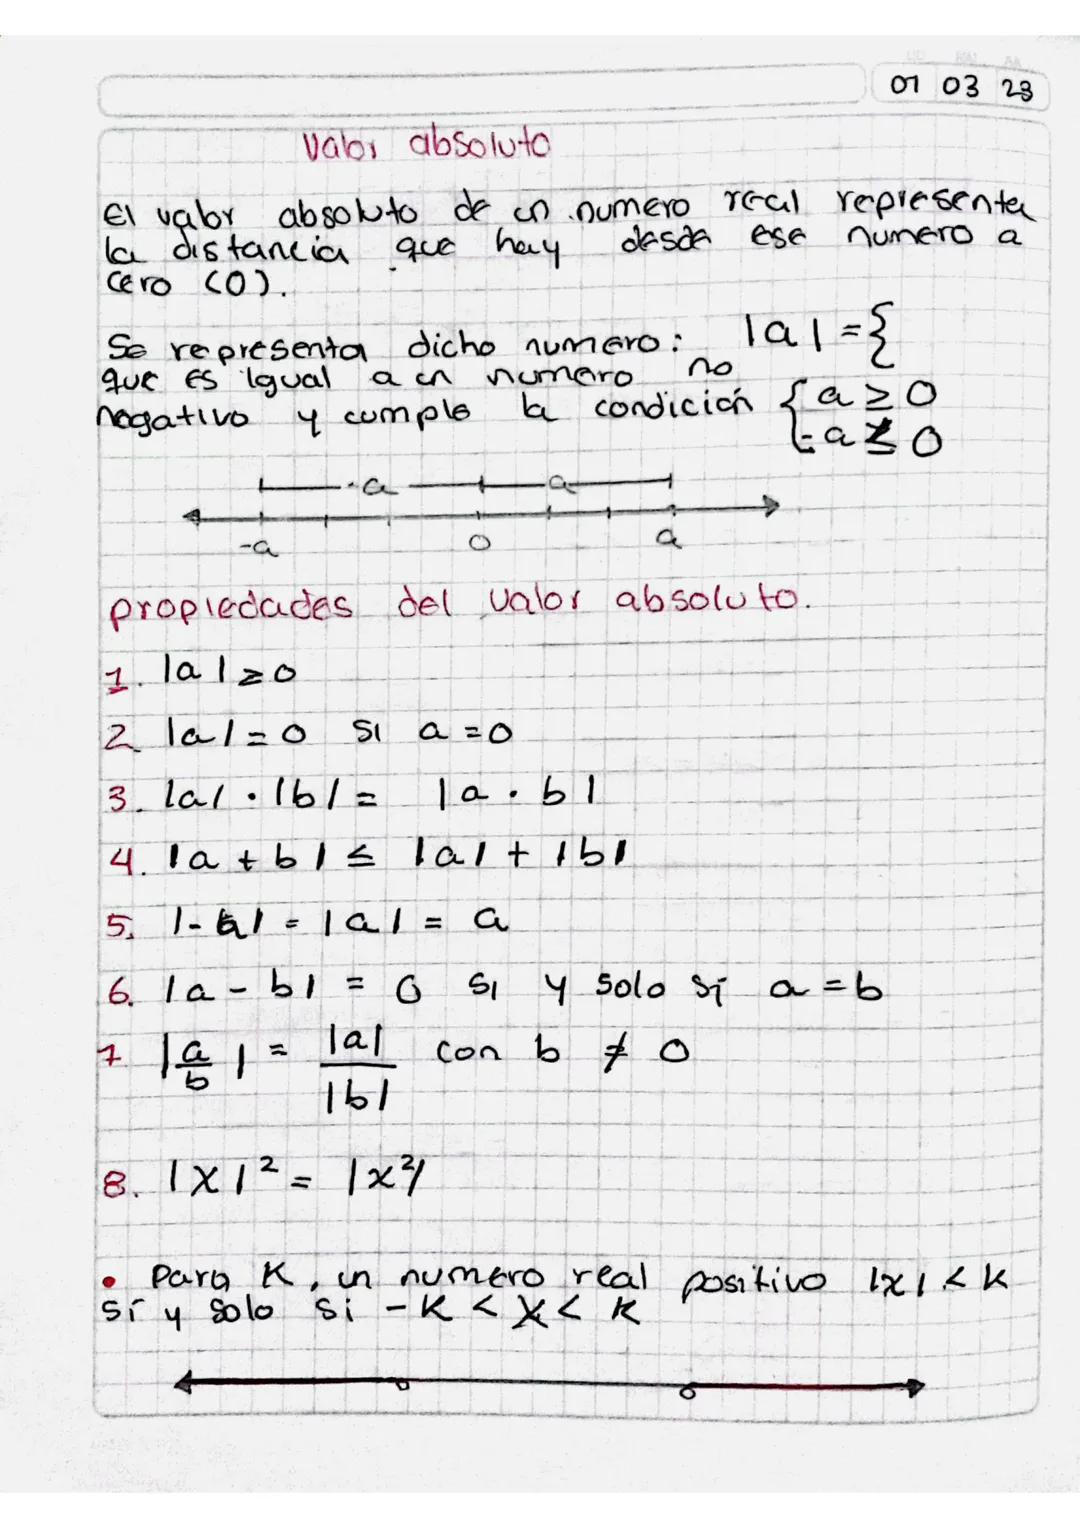 01 03 23
Valor absoluto
El valor absoluto de un numero real representa
la distancia que hay desde ese numero a
cero (0).
Se representa dicho numero: |a| = {
que es igual a un numero no
negativo y cumple la condición { a ≥ 0
-a ≤ 0
-a a
-a 0 a
propiedades del valor absoluto.
1. |a| ≥ 0
2. |a| = 0 si a = 0
3. |a| · |b| = |a · b|
4. |a + b| ≤ |a| + |b|
5. |-a| = |a| = a
6. |a - b| = 0 si y solo sí a = b
7. |a/b| = |a|/|b| con b ≠ 0
8. |x|² = |x²|
• Para K, un numero real positivo |x| < k
sí y solo si -K < x < k